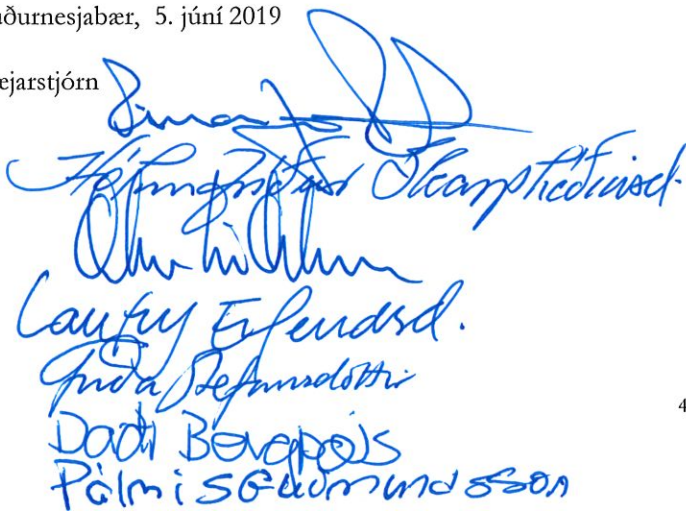 ðurnesjabær, 5. júní 2019
ejarstjórn
Hólmfríður Skarphéðinsd.
Laufey Erlendsd.
Fríða Stefánsdóttir
Daði Bergþórs
Pálmi S Guðmundsson
4